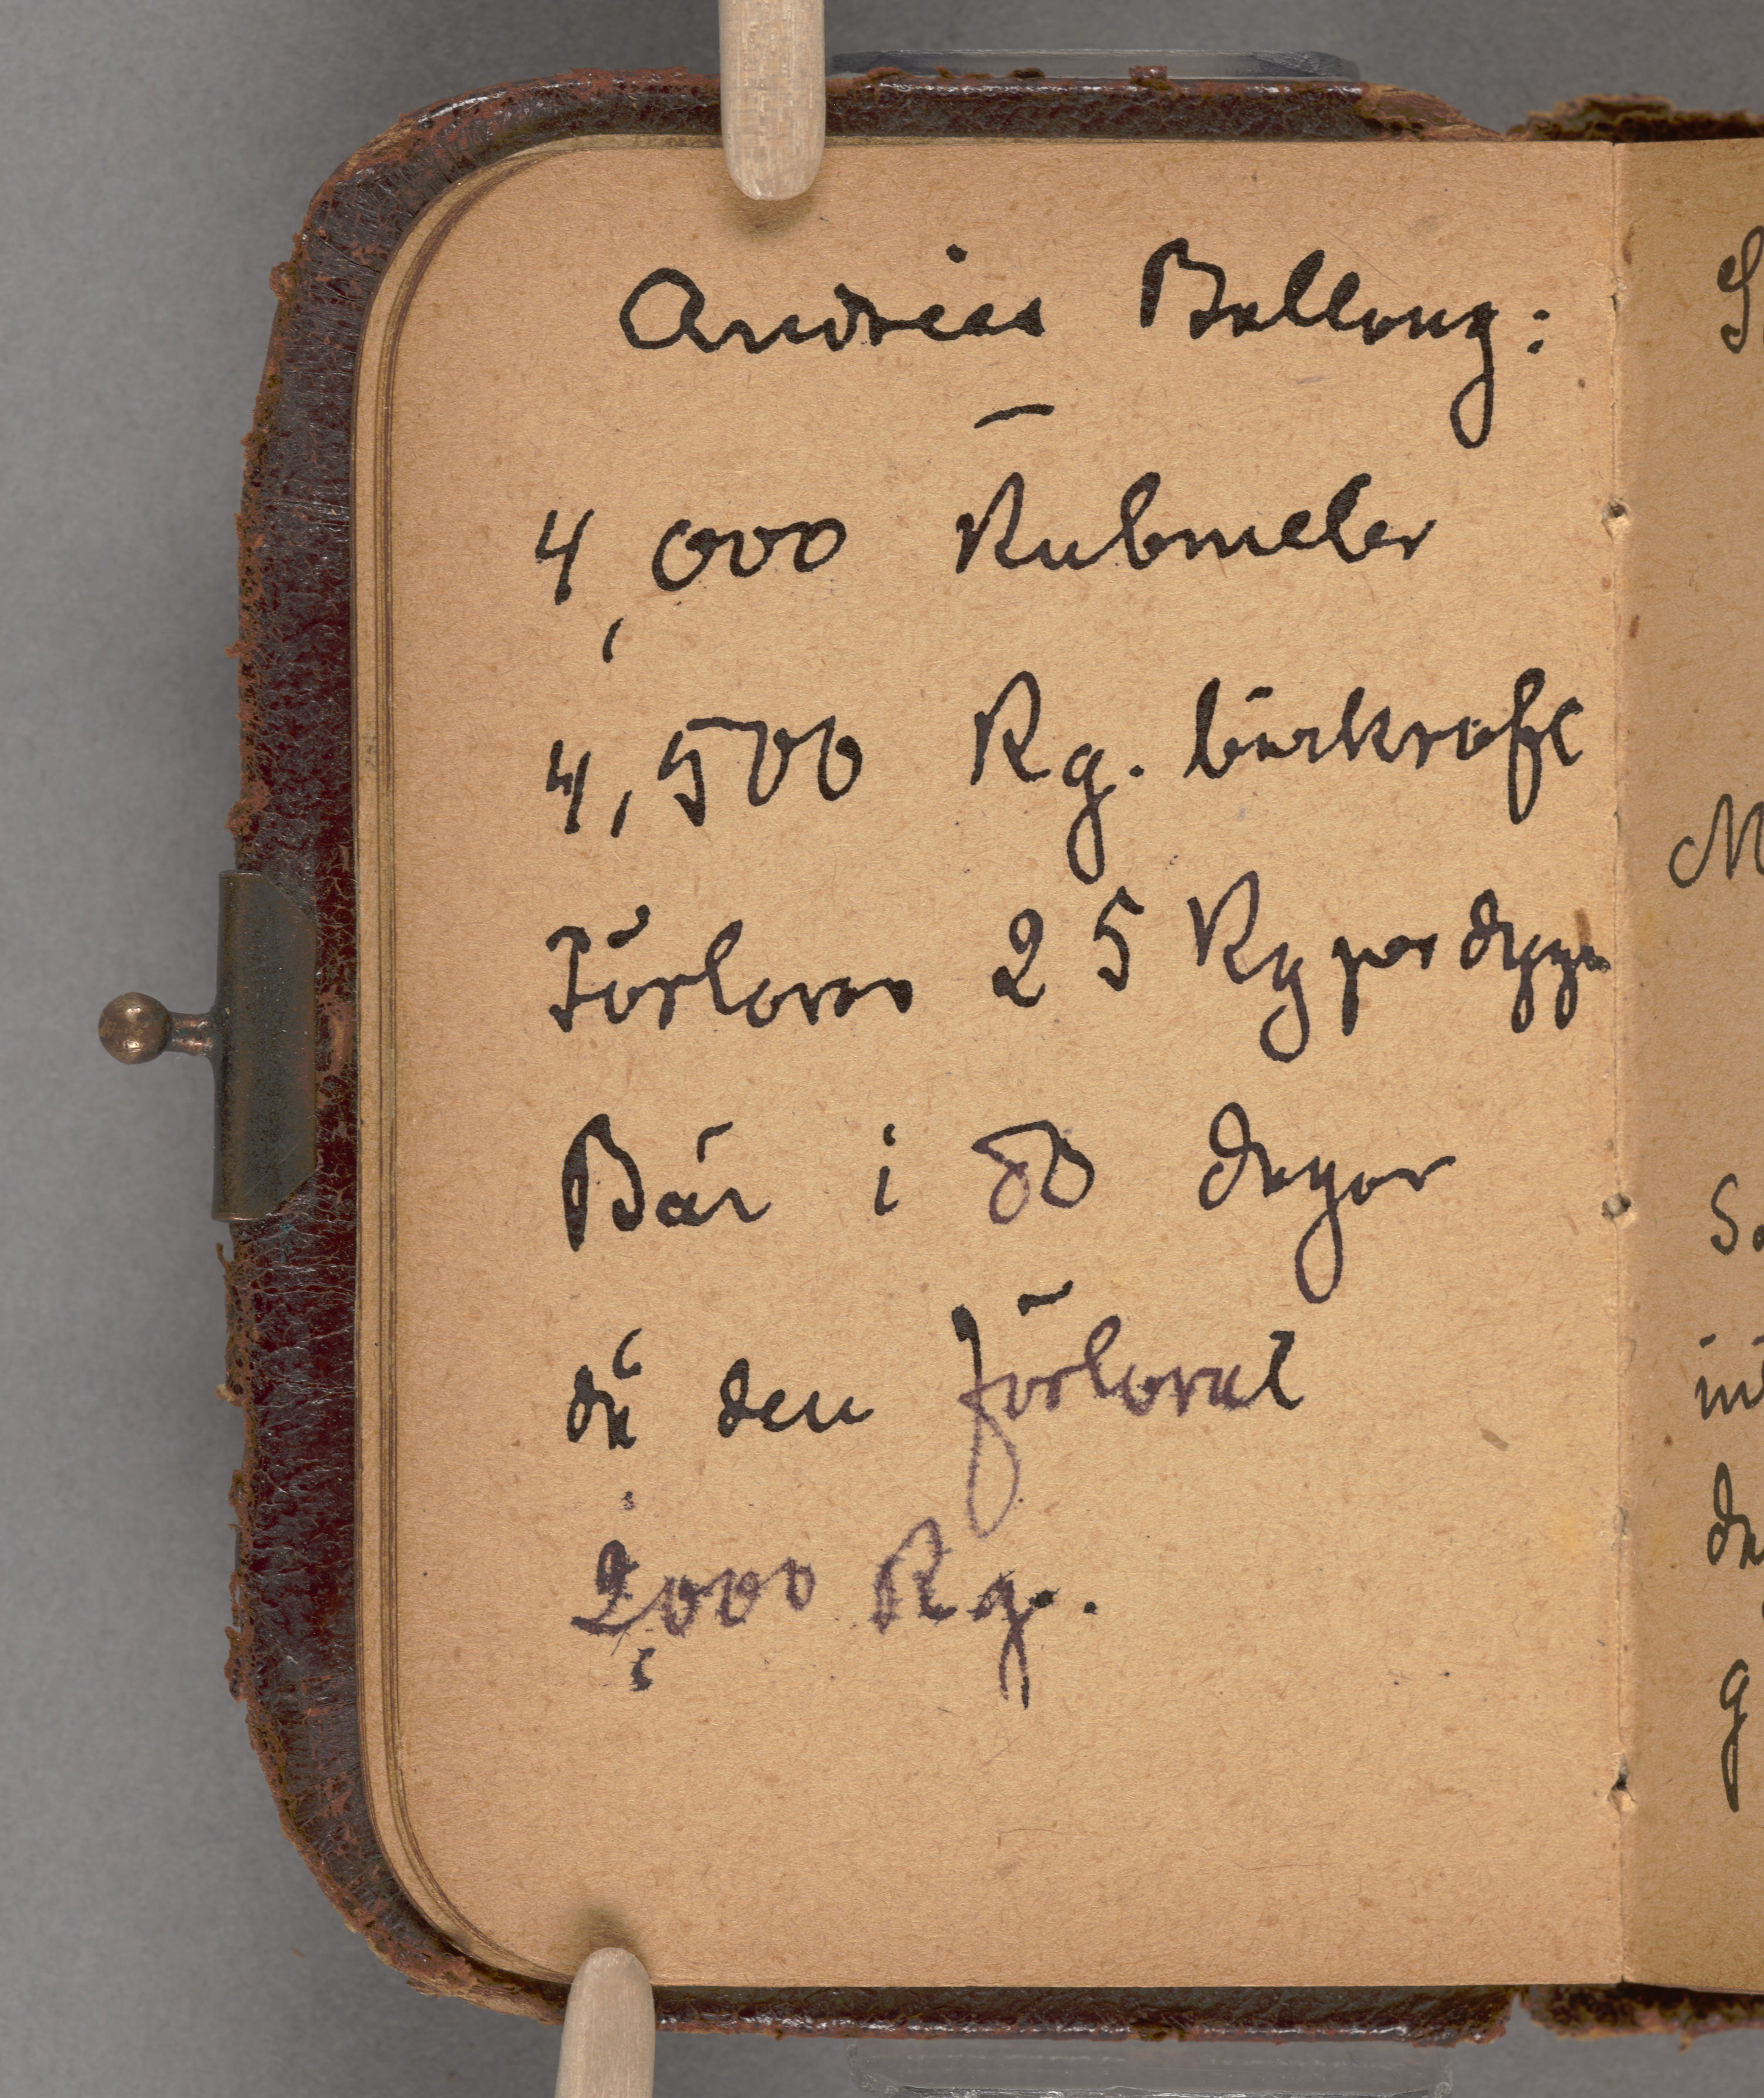 Andrées Ballong:
4,000 Kubmeter
4,500 Kg. bärkraft
Förlorar 25 Kg per dygn
Bär i 80 dagar
då den förlorat
2,000 Kg.